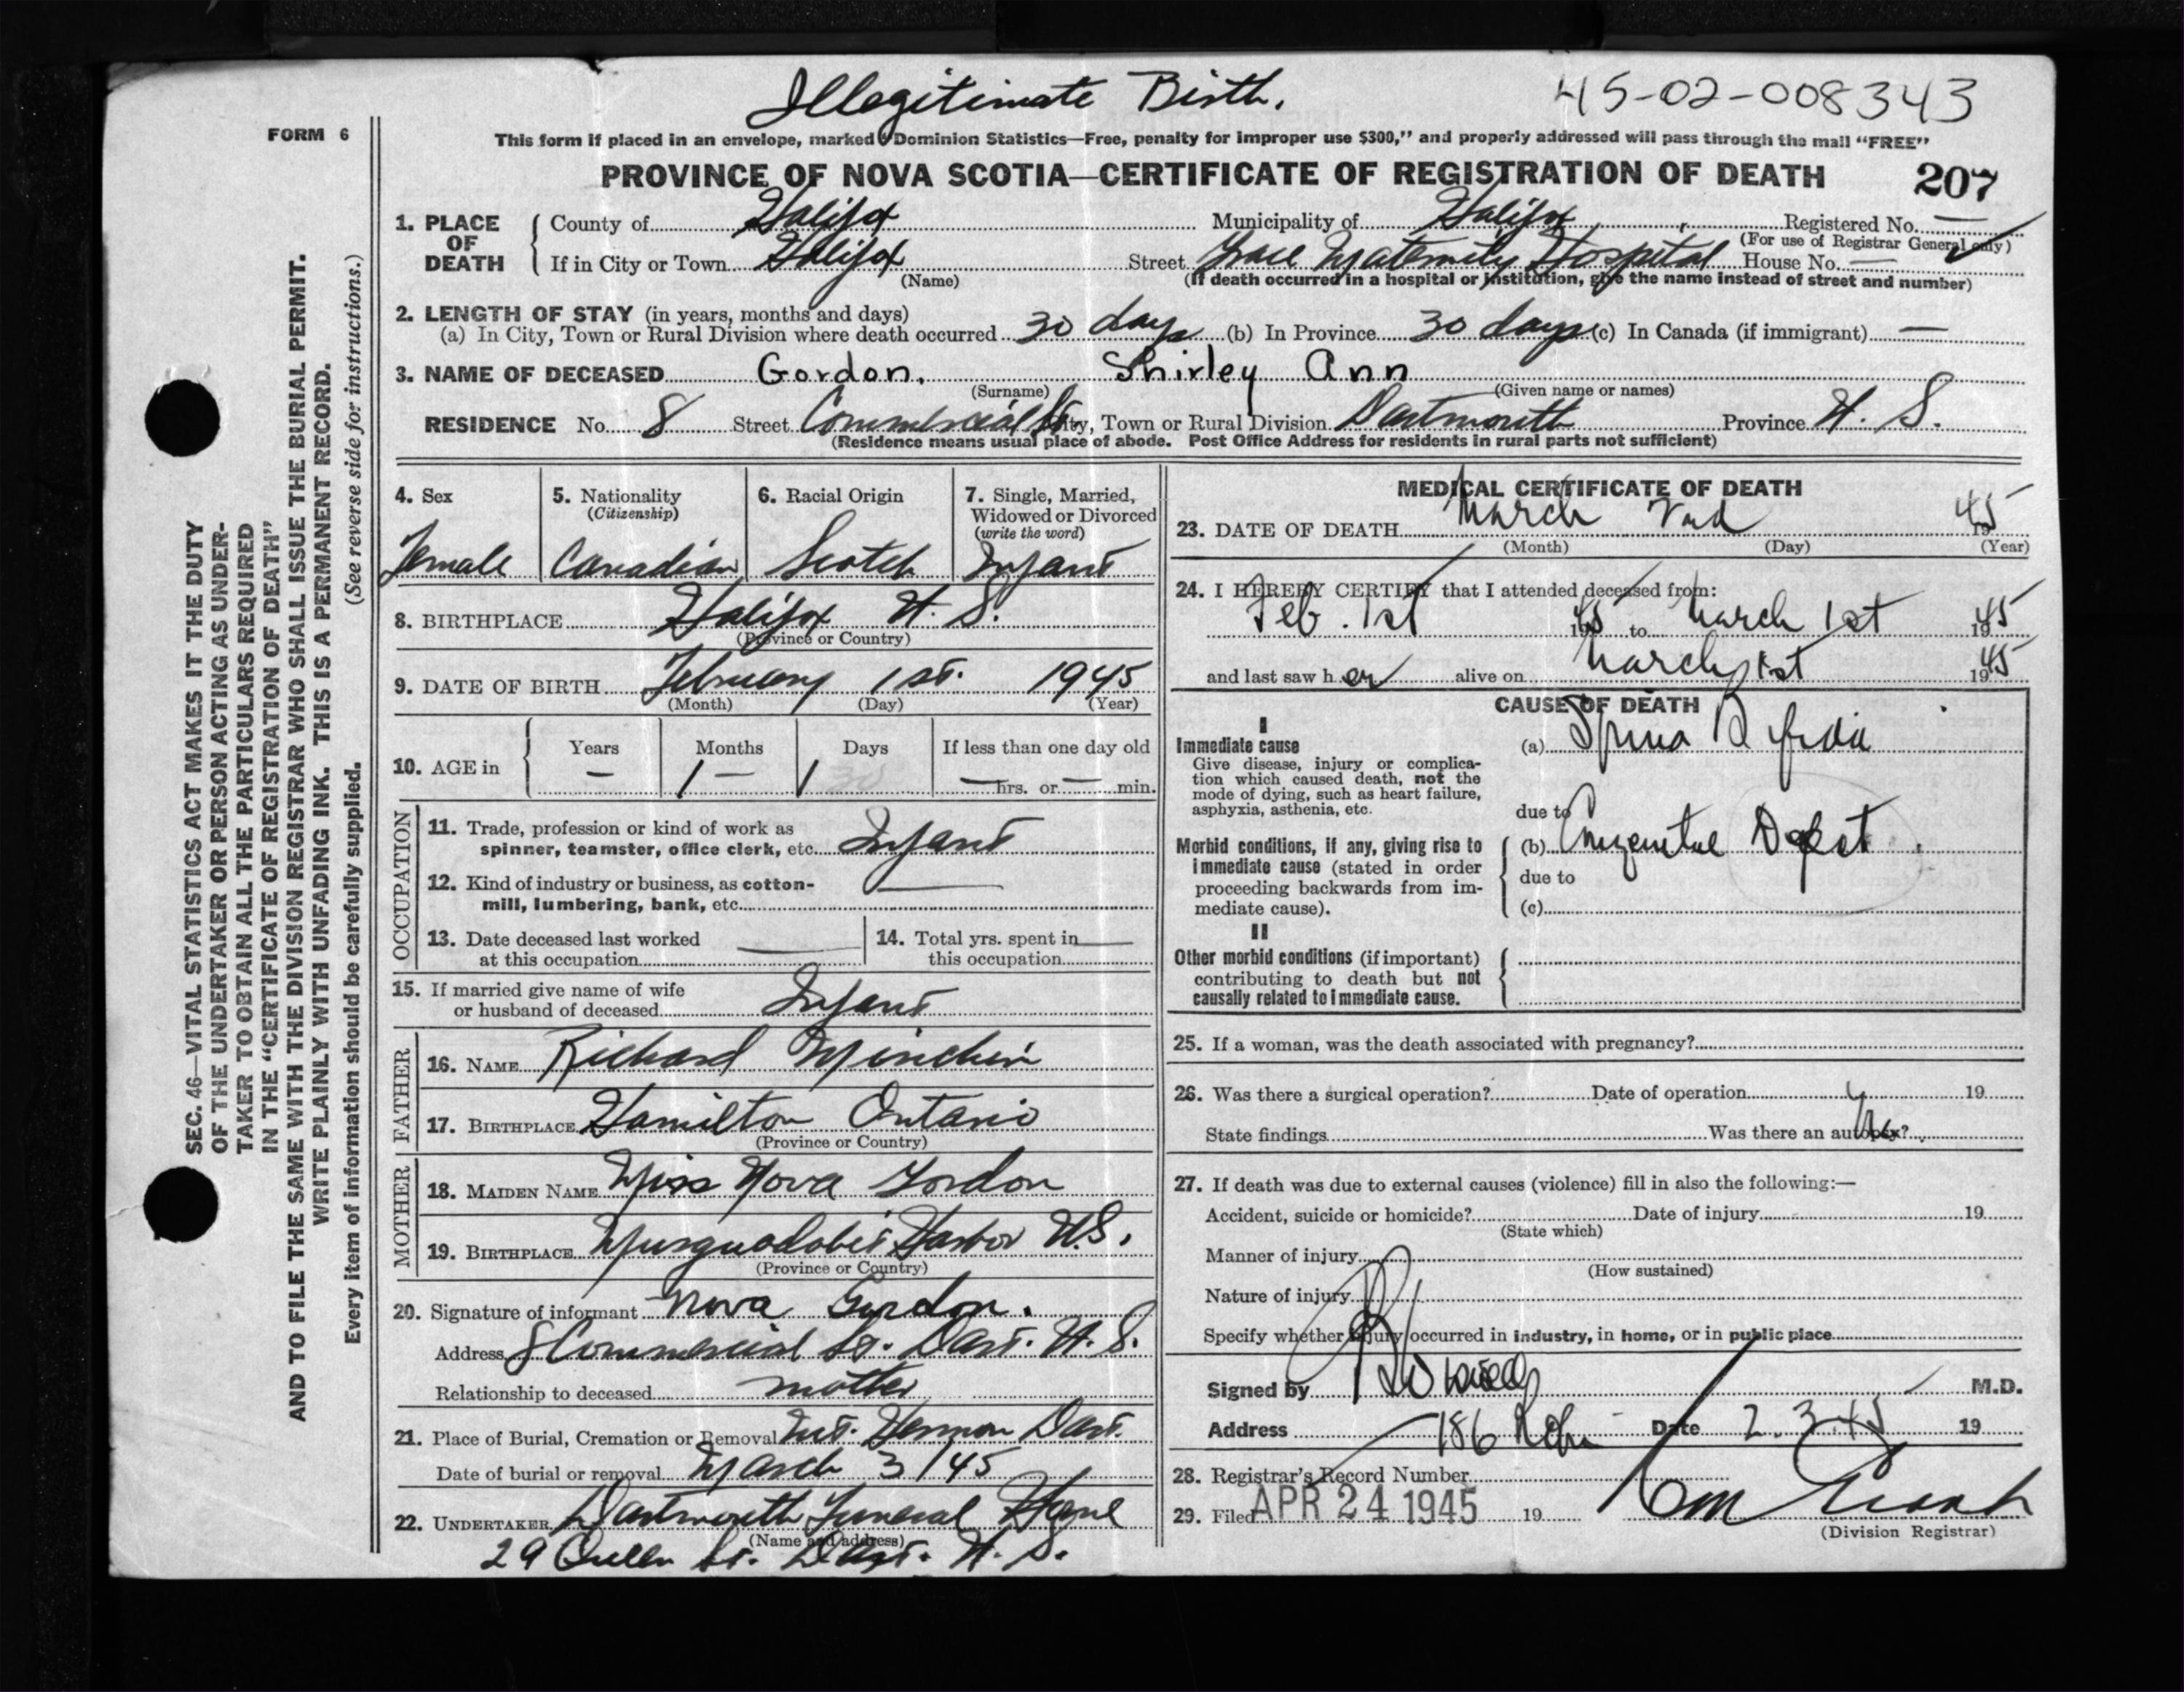 Illegitimate Birth.
45-02-008343
FORM 6
This form if placed in an envelope, marked "Dominion Statistics—Free, penalty for improper use $300," and properly addressed will pass through the mail "FREE"
PROVINCE OF NOVA SCOTIA—CERTIFICATE OF REGISTRATION OF DEATH 207
1. PLACE OF DEATH County of Halifax Municipality of Halifax Registered No. —
(For use of Registrar General only)
If in City or Town Halifax Street Grace Maternity Hospital House No. —
(Name) (If death occurred in a hospital or institution, give the name instead of street and number)
2. LENGTH OF STAY (in years, months and days)
(a) In City, Town or Rural Division where death occurred 30 days (b) In Province 30 days (c) In Canada (if immigrant) —
3. NAME OF DECEASED Gordon, Shirley Ann
(Surname) (Given name or names)
RESIDENCE No. 8 Street Commercial St. City, Town or Rural Division Dartmouth Province N. S.
(Residence means usual place of abode. Post Office Address for residents in rural parts not sufficient)
4. Sex 5. Nationality 6. Racial Origin 7. Single, Married,
(Citizenship) Widowed or Divorced
(write the word)
Female Canadian Scotch Infant
8. BIRTHPLACE Halifax N. S.
(Province or Country)
9. DATE OF BIRTH February 1st. 1945
(Month) (Day) (Year)
10. AGE in Years Months Days If less than one day old
— 1 — 1 30 — hrs. or — min.
OCCUPATION
11. Trade, profession or kind of work as
spinner, teamster, office clerk, etc. Infant
12. Kind of industry or business, as cotton-
mill, lumbering, bank, etc. —
13. Date deceased last worked 14. Total yrs. spent in
at this occupation — this occupation —
15. If married give name of wife
or husband of deceased Infant
FATHER
16. NAME Richard Minchin
17. BIRTHPLACE Hamilton Ontario
(Province or Country)
MOTHER
18. MAIDEN NAME Miss Nova Gordon
19. BIRTHPLACE Musquodobit Harbor N.S.
(Province or Country)
20. Signature of informant Nova Gordon.
Address 8 Commercial St. Dart. N. S.
Relationship to deceased mother
21. Place of Burial, Cremation or Removal Mt. Hermon Dart.
Date of burial or removal March 3/45
22. UNDERTAKER Dartmouth Funeral Home
(Name and address)
29 Queen St. Dart. N. S.
MEDICAL CERTIFICATE OF DEATH
23. DATE OF DEATH March 2nd 1945
(Month) (Day) (Year)
24. I HEREBY CERTIFY that I attended deceased from:
Feb. 1st 1945 to March 1st 1945
and last saw her alive on March 1st 1945
CAUSE OF DEATH
I
Immediate cause
Give disease, injury or complica-
tion which caused death, not the
mode of dying, such as heart failure,
asphyxia, asthenia, etc.
(a) Spina Bifida
due to
Morbid conditions, if any, giving rise to
immediate cause (stated in order
proceeding backwards from im-
mediate cause).
(b) Congenital Defect.
due to
(c)
II
Other morbid conditions (if important)
contributing to death but not
causally related to immediate cause.
25. If a woman, was the death associated with pregnancy?
26. Was there a surgical operation? Date of operation 19
State findings Was there an autopsy?
27. If death was due to external causes (violence) fill in also the following:—
Accident, suicide or homicide? Date of injury 19
(State which)
Manner of injury
(How sustained)
Nature of injury
Specify whether injury occurred in industry, in home, or in public place
Signed by M.D.
Address 186 Date 2.3.45 19
28. Registrar's Record Number
29. Filed APR 24 1945 19
(Division Registrar)
SEC. 46—VITAL STATISTICS ACT MAKES IT THE DUTY
OF THE UNDERTAKER OR PERSON ACTING AS UNDER-
TAKER TO OBTAIN ALL THE PARTICULARS REQUIRED
IN THE "CERTIFICATE OF REGISTRATION OF DEATH"
AND TO FILE THE SAME WITH THE DIVISION REGISTRAR WHO SHALL ISSUE THE BURIAL PERMIT.
WRITE PLAINLY WITH UNFADING INK. THIS IS A PERMANENT RECORD.
Every item of information should be carefully supplied. (See reverse side for instructions.)